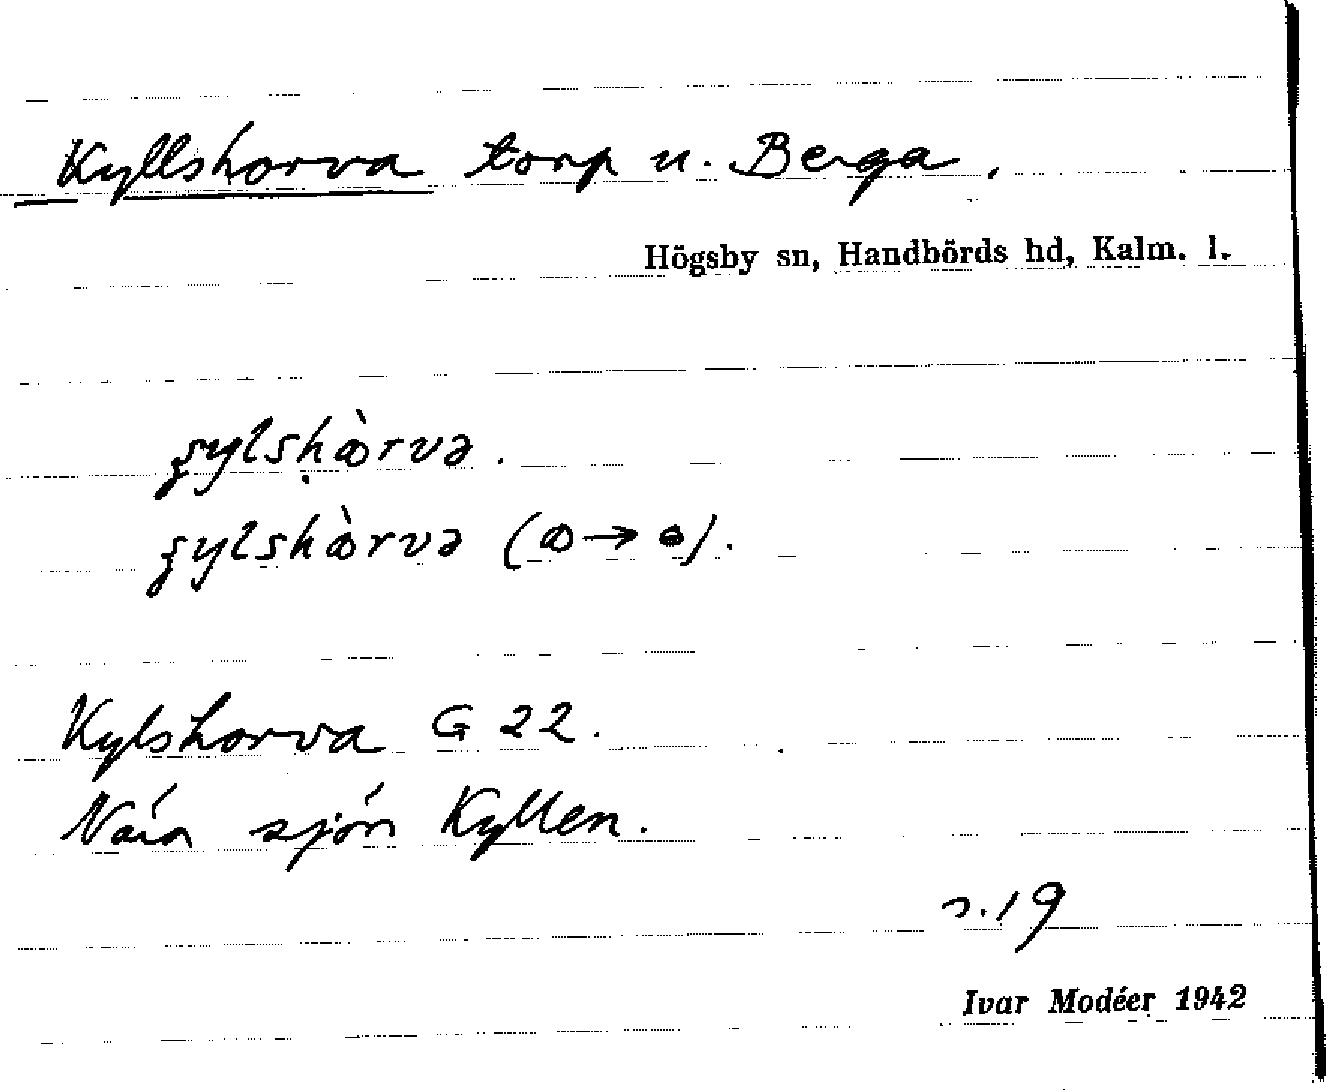 Kyllshorva torp u. Berga.
Högsby sn, Handbörds hd, Kalm. l.
Kylshorva G 22.
Nära sjön Kyllen.
s. 19
Ivar Modéer 1942